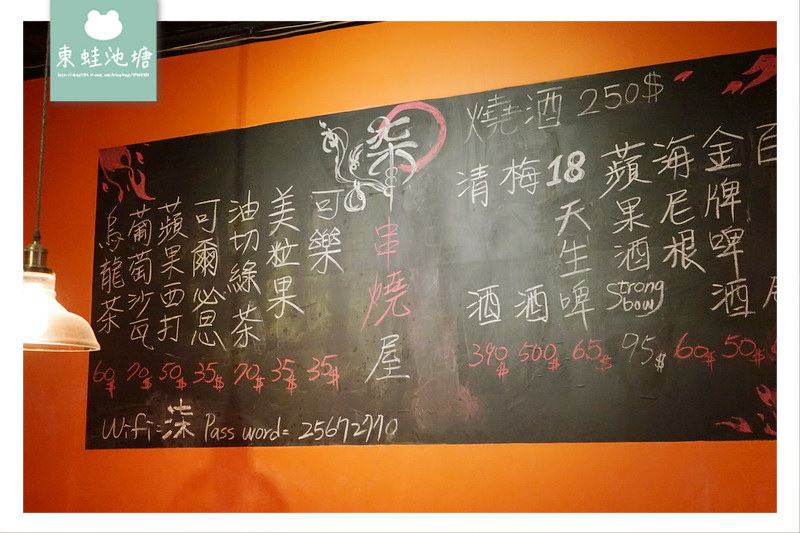 東蛙池塘
燒酒 250$
柒串燒屋
可樂 35$
美粒果 35$
油切綠茶 70$
可爾必思 35$
蘋果西打 50$
葡萄沙瓦 70$
烏龍茶 60$
百
金牌啤酒 50$
海尼根 60$
蘋果酒 Strong bow 95$
18天生啤 65$
梅酒 500$
清酒 390$
Wifi=柒 Password= 25672770